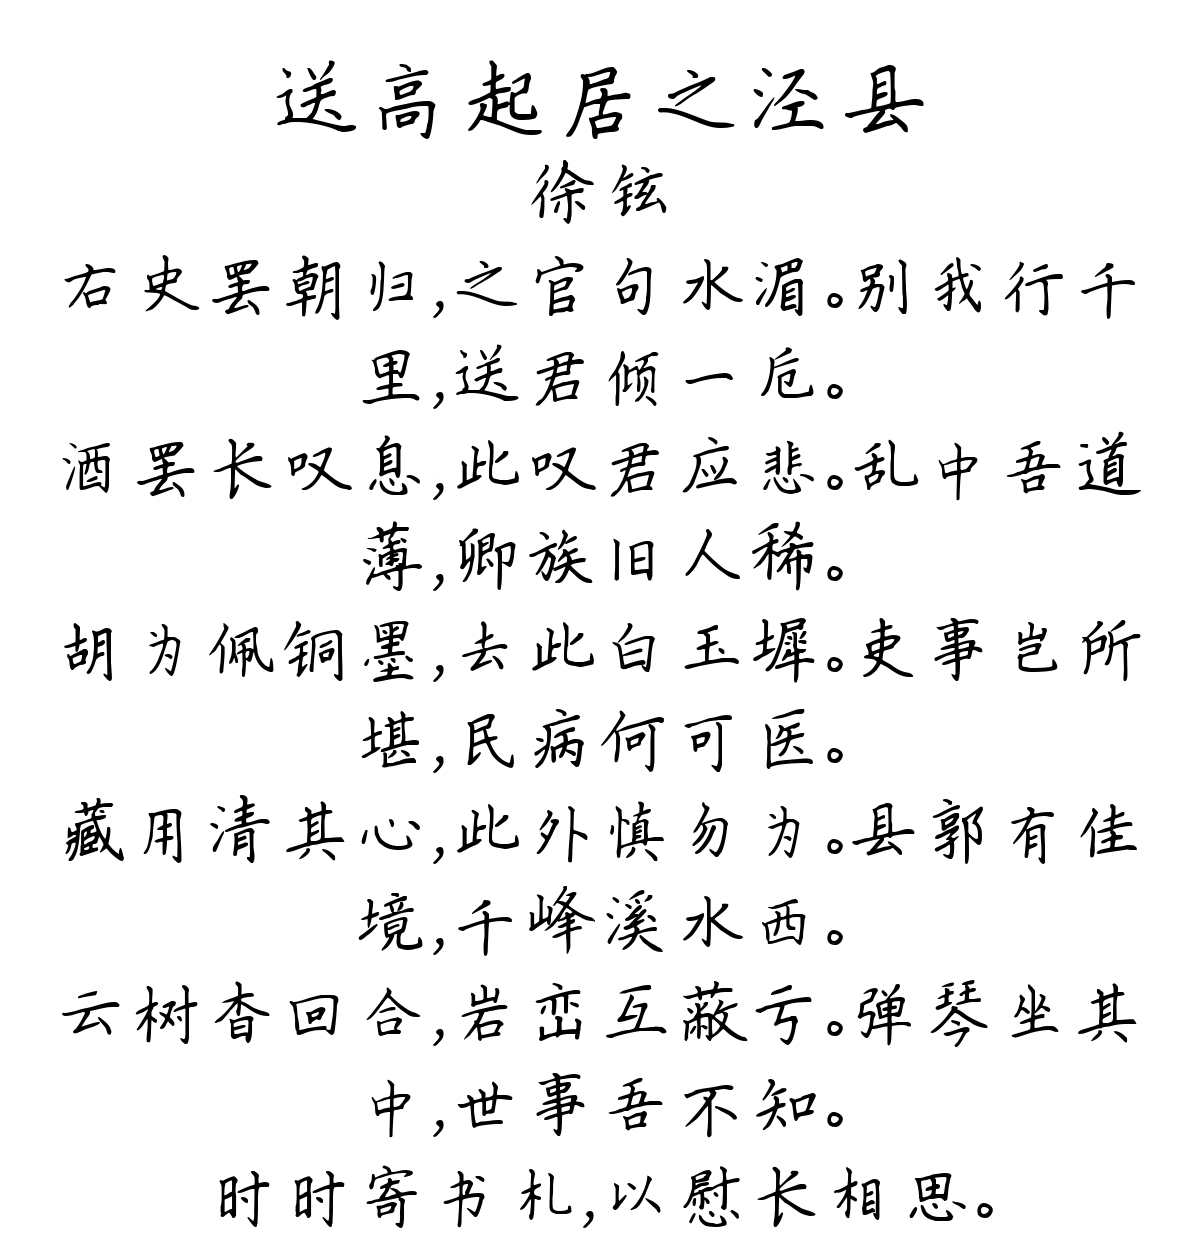 送高起居之泾县
徐铉
右史罢朝归,之官句水湄。别我行千
里,送君倾一卮。
酒罢长叹息,此叹君应悲。乱中吾道
薄,卿族旧人稀。
胡为佩铜墨,去此白玉墀。吏事岂所
堪,民病何可医。
藏用清其心,此外慎勿为。县郭有佳
境,千峰溪水西。
云树杳回合,岩峦互蔽亏。弹琴坐其
中,世事吾不知。
时时寄书札,以慰长相思。